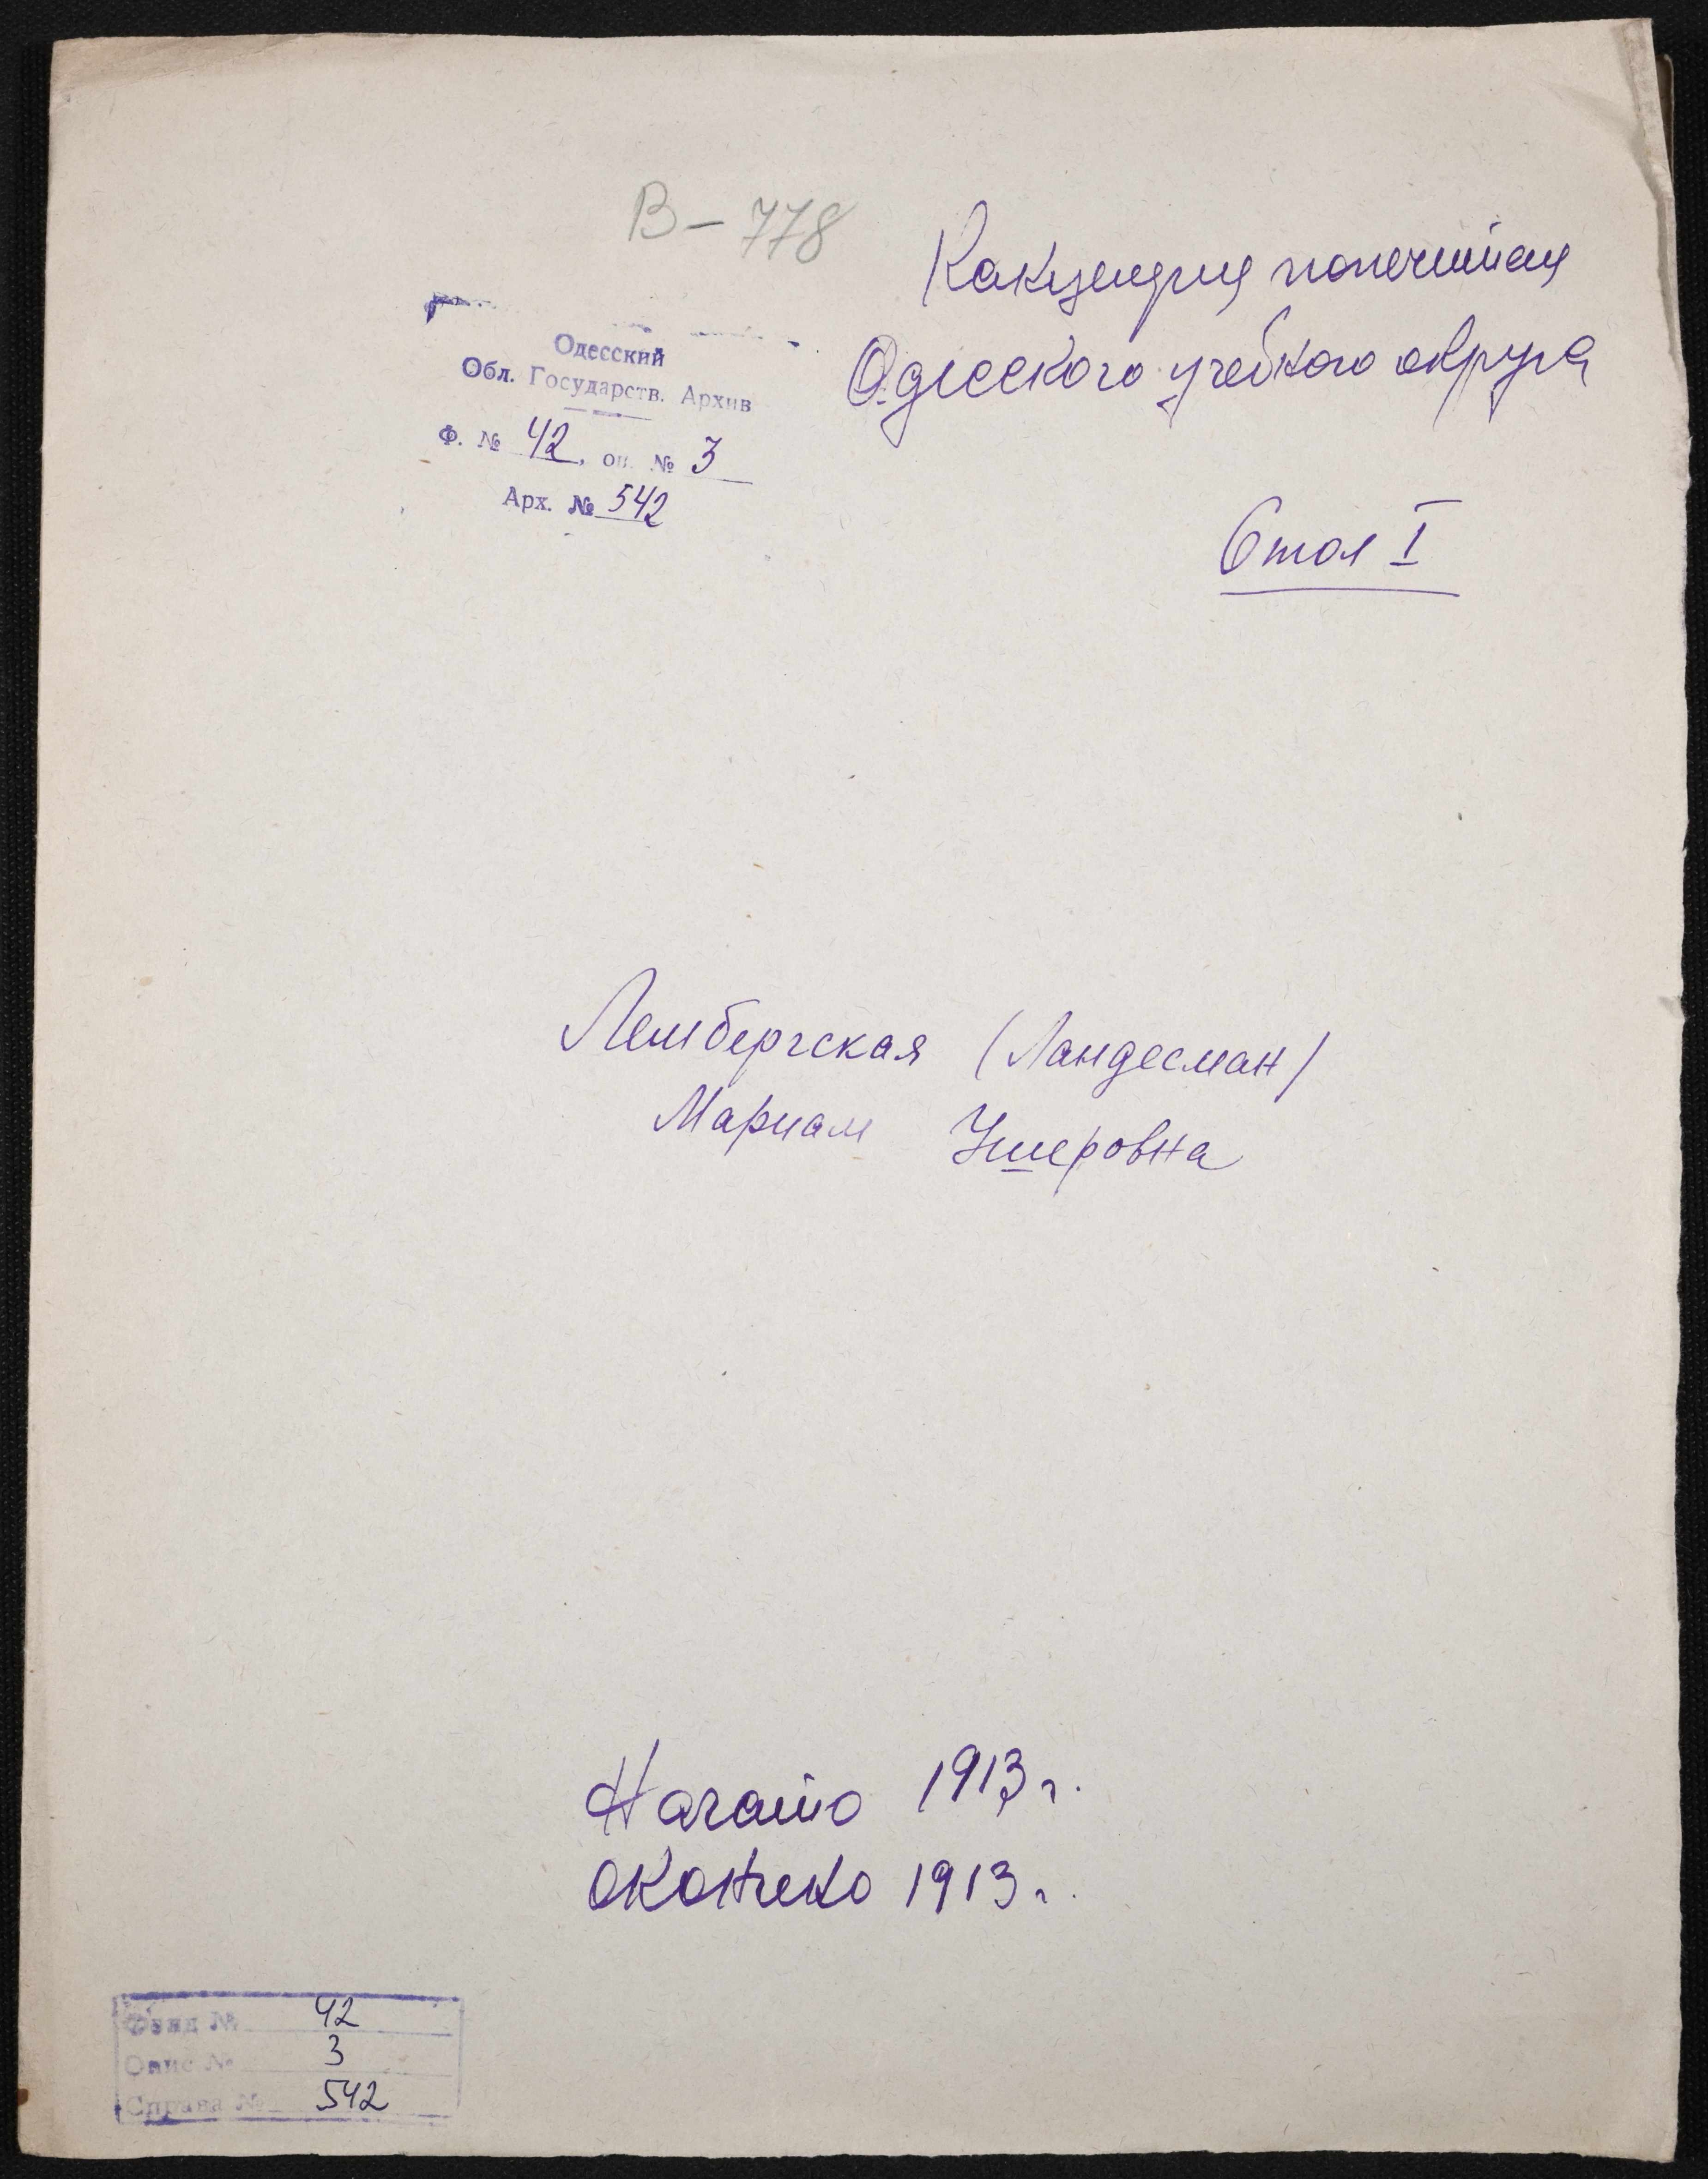 В-778
Канцелярия попечителя
Одесского учебного округа
Одесский
Обл. Государств. Архив
Ф. № 42, оп. № 3
Арх. № 542
Стол I
Лембергская (Ландесман)
Мариам Ушеровна
Начато 1913 г.
Окончено 1913 г.
Фонд № 42
Опис № 3
Справа № 542